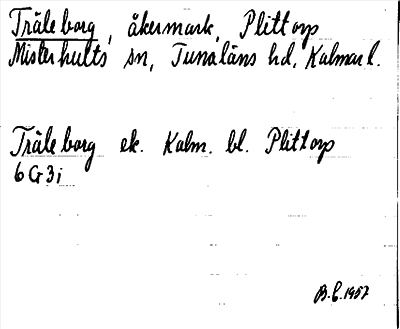 Träleborg, åkermark, Plittorp
Misterhults sn, Tunaläns hd, Kalmar l.
Träleborg ek. Kalm. bl. Plittorp
6G3i
B.E. 1957